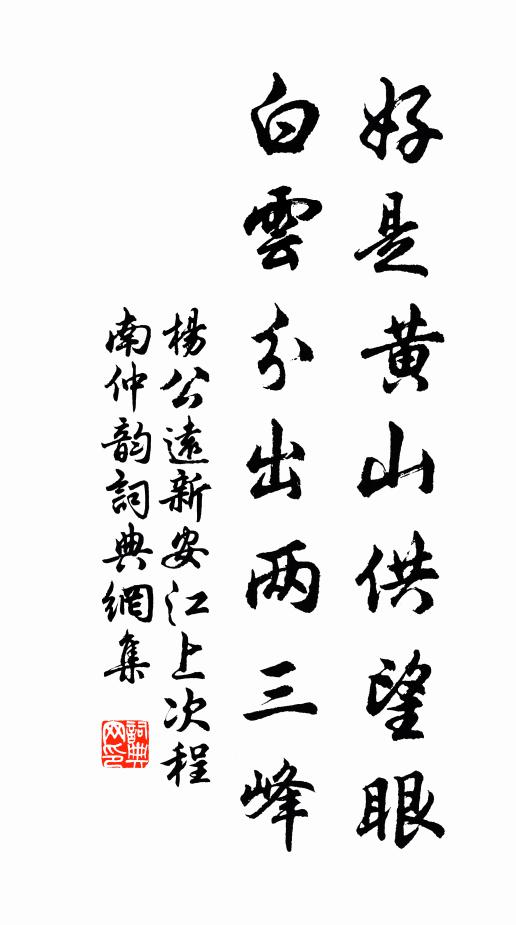 好是黄山供望眼
白雲分出两三峰
楊公遠新安江上次程
南仲韵詞典網集
詞典網印